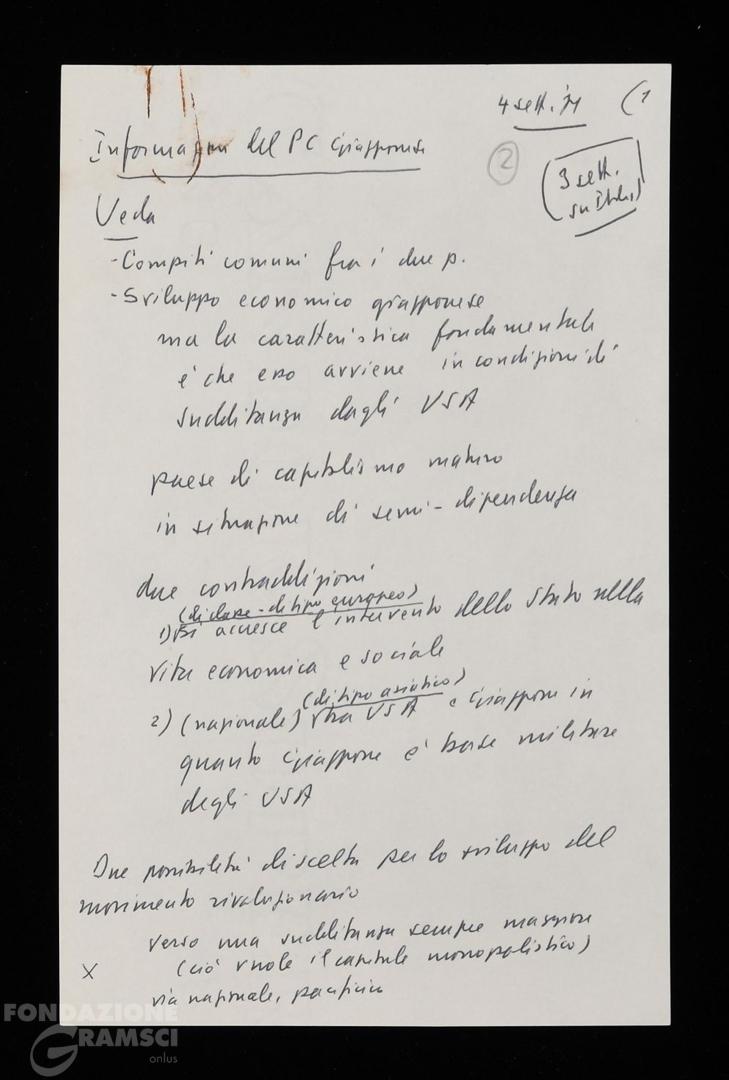 4 sett. '71 (1
Informazioni del PC Giapponese
2
(3 sett.
su Italia)
Ueda
- Compiti comuni fra i due p.
- Sviluppo economico giapponese
ma la caratteristica fondamentale
è che esso avviene in condizioni di
sudditanza dagli USA
paese di capitalismo maturo
in situazione di semi-dipendenza
due contraddizioni
(di classe - di tipo europeo)
1) Si accresce l'intervento dello Stato nella
vita economica e sociale
(di tipo asiatico)
2) (nazionale) tra USA e Giappone in
quanto Giappone è base militare
degli USA
Due possibilità di scelta per lo sviluppo del
movimento rivoluzionario
verso una sudditanza sempre maggiore
(ciò vuole il capitale monopolistico)
X
via nazionale, pacifica
FONDAZIONE
GRAMSCI
onlus